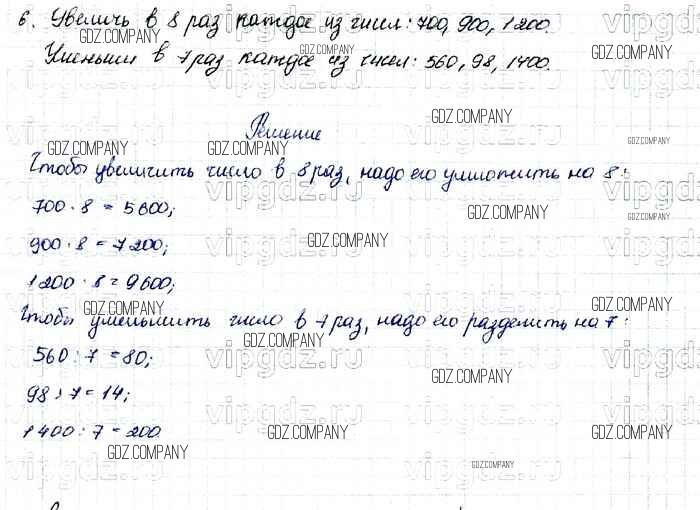 6. Увеличь в 8 раз каждое из чисел: 700, 900, 1200.
Уменьши в 7 раз каждое из чисел: 560, 98, 1400.
Решение
Чтобы увеличить число в 8 раз, надо его умножить на 8:
700 · 8 = 5600;
900 · 8 = 7200;
1200 · 8 = 9600;
Чтобы уменьшить число в 7 раз, надо его разделить на 7:
560 : 7 = 80;
98 : 7 = 14;
1400 : 7 = 200.
GDZ.COMPANY
vipgdz.ru